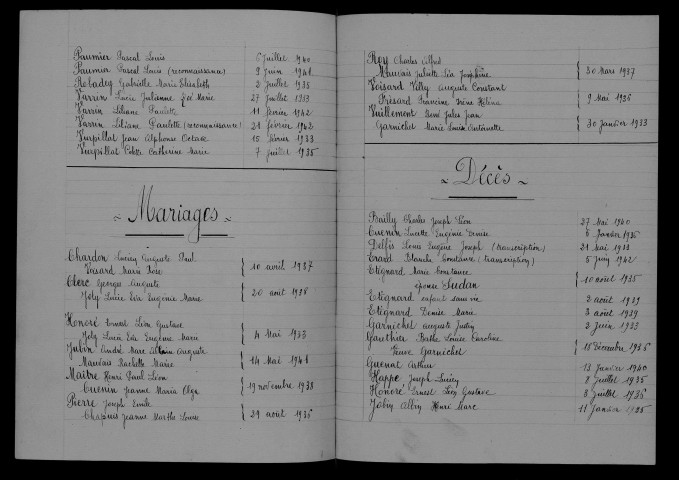 Paumier Pascal Louis 6 juillet 1940
Paumier Pascal Louis (reconnaissance) 9 juin 1948
Robadey Gabrielle Marie Elisabeth 2 juillet 1935
Varrin Lucie Julienne Zoé Marie 27 juillet 1933
Varrin Liliane Paulette 11 février 1942
Varrin Liliane Paulette (reconnaissance) 21 février 1942
Vurpillat Jean Alphonse Octave 15 février 1933
Vurpillat Colette Catherine Marie 7 juillet 1935
- Mariages -
Chardon Lucien Auguste Paul
Marie Rose } 10 avril 1937
Clerc Georges Auguste
Joly Lucie Eva Eugénie Marie } 20 août 1938
Honoré Ernest Léon Gustave
Joly Lucie Eva Eugénie Marie } 4 Mai 1933
Jubin André Marc Auguste
Mauvais Rachelle Marie } 14 Mai 1948
Maître Henri Paul Léon
Cuenin Jeanne Maria Olga } 19 novembre 1938
Pierre Joseph Emile
Chapuis Jeanne Marthe Louise } 29 août 1936
Roy Charles Alfred
Mauvais Juliette Léa Joséphine } 30 Mars 1937
Voisard Willy Auguste Constant
Frésard Francine Irène Hélène } 9 Mai 1936
Vuillemont René Jules Jean
Garnichet Marie Louise Antoinette } 30 janvier 1933
- Décès -
Bailly Charles Joseph Léon 27 Mai 1940
Cuenin Lucette Eugénie Denise 6 janvier 1936
Delfis Louis Eugène Joseph (transcription) 21 Mai 1933
Erard Blanche Constance (transcription) 5 juin 1942
Etégnard Marie Constance
épouse Sudan } 10 août 1935
Etégnard enfant sans vie 2 août 1939
Etégnard Denise Marie 3 août 1939
Garnichet Auguste Justin 2 juin 1933
Gauthier Berthe Louise Caroline
Veuve Garnichet } 18 Décembre 1936
Guenat Arthur 13 janvier 1940
Happe Joseph Lucien 8 juillet 1935
Honoré Ernest Léon Gustave 3 juillet 1936
Jobin Albin Henri Marc 11 janvier 1935